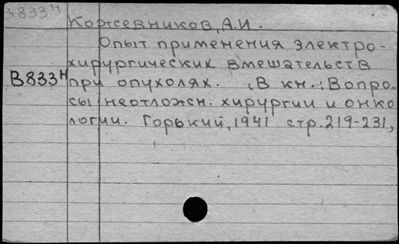 В833н
Кожевников, А.И.
Опыт применения электро-
хирургических вмешательств
В833н при опухолях. (В кн.: Вопро-
сы неотложн. хирургии и онко
логии. Горький, 1941 стр. 219-231,